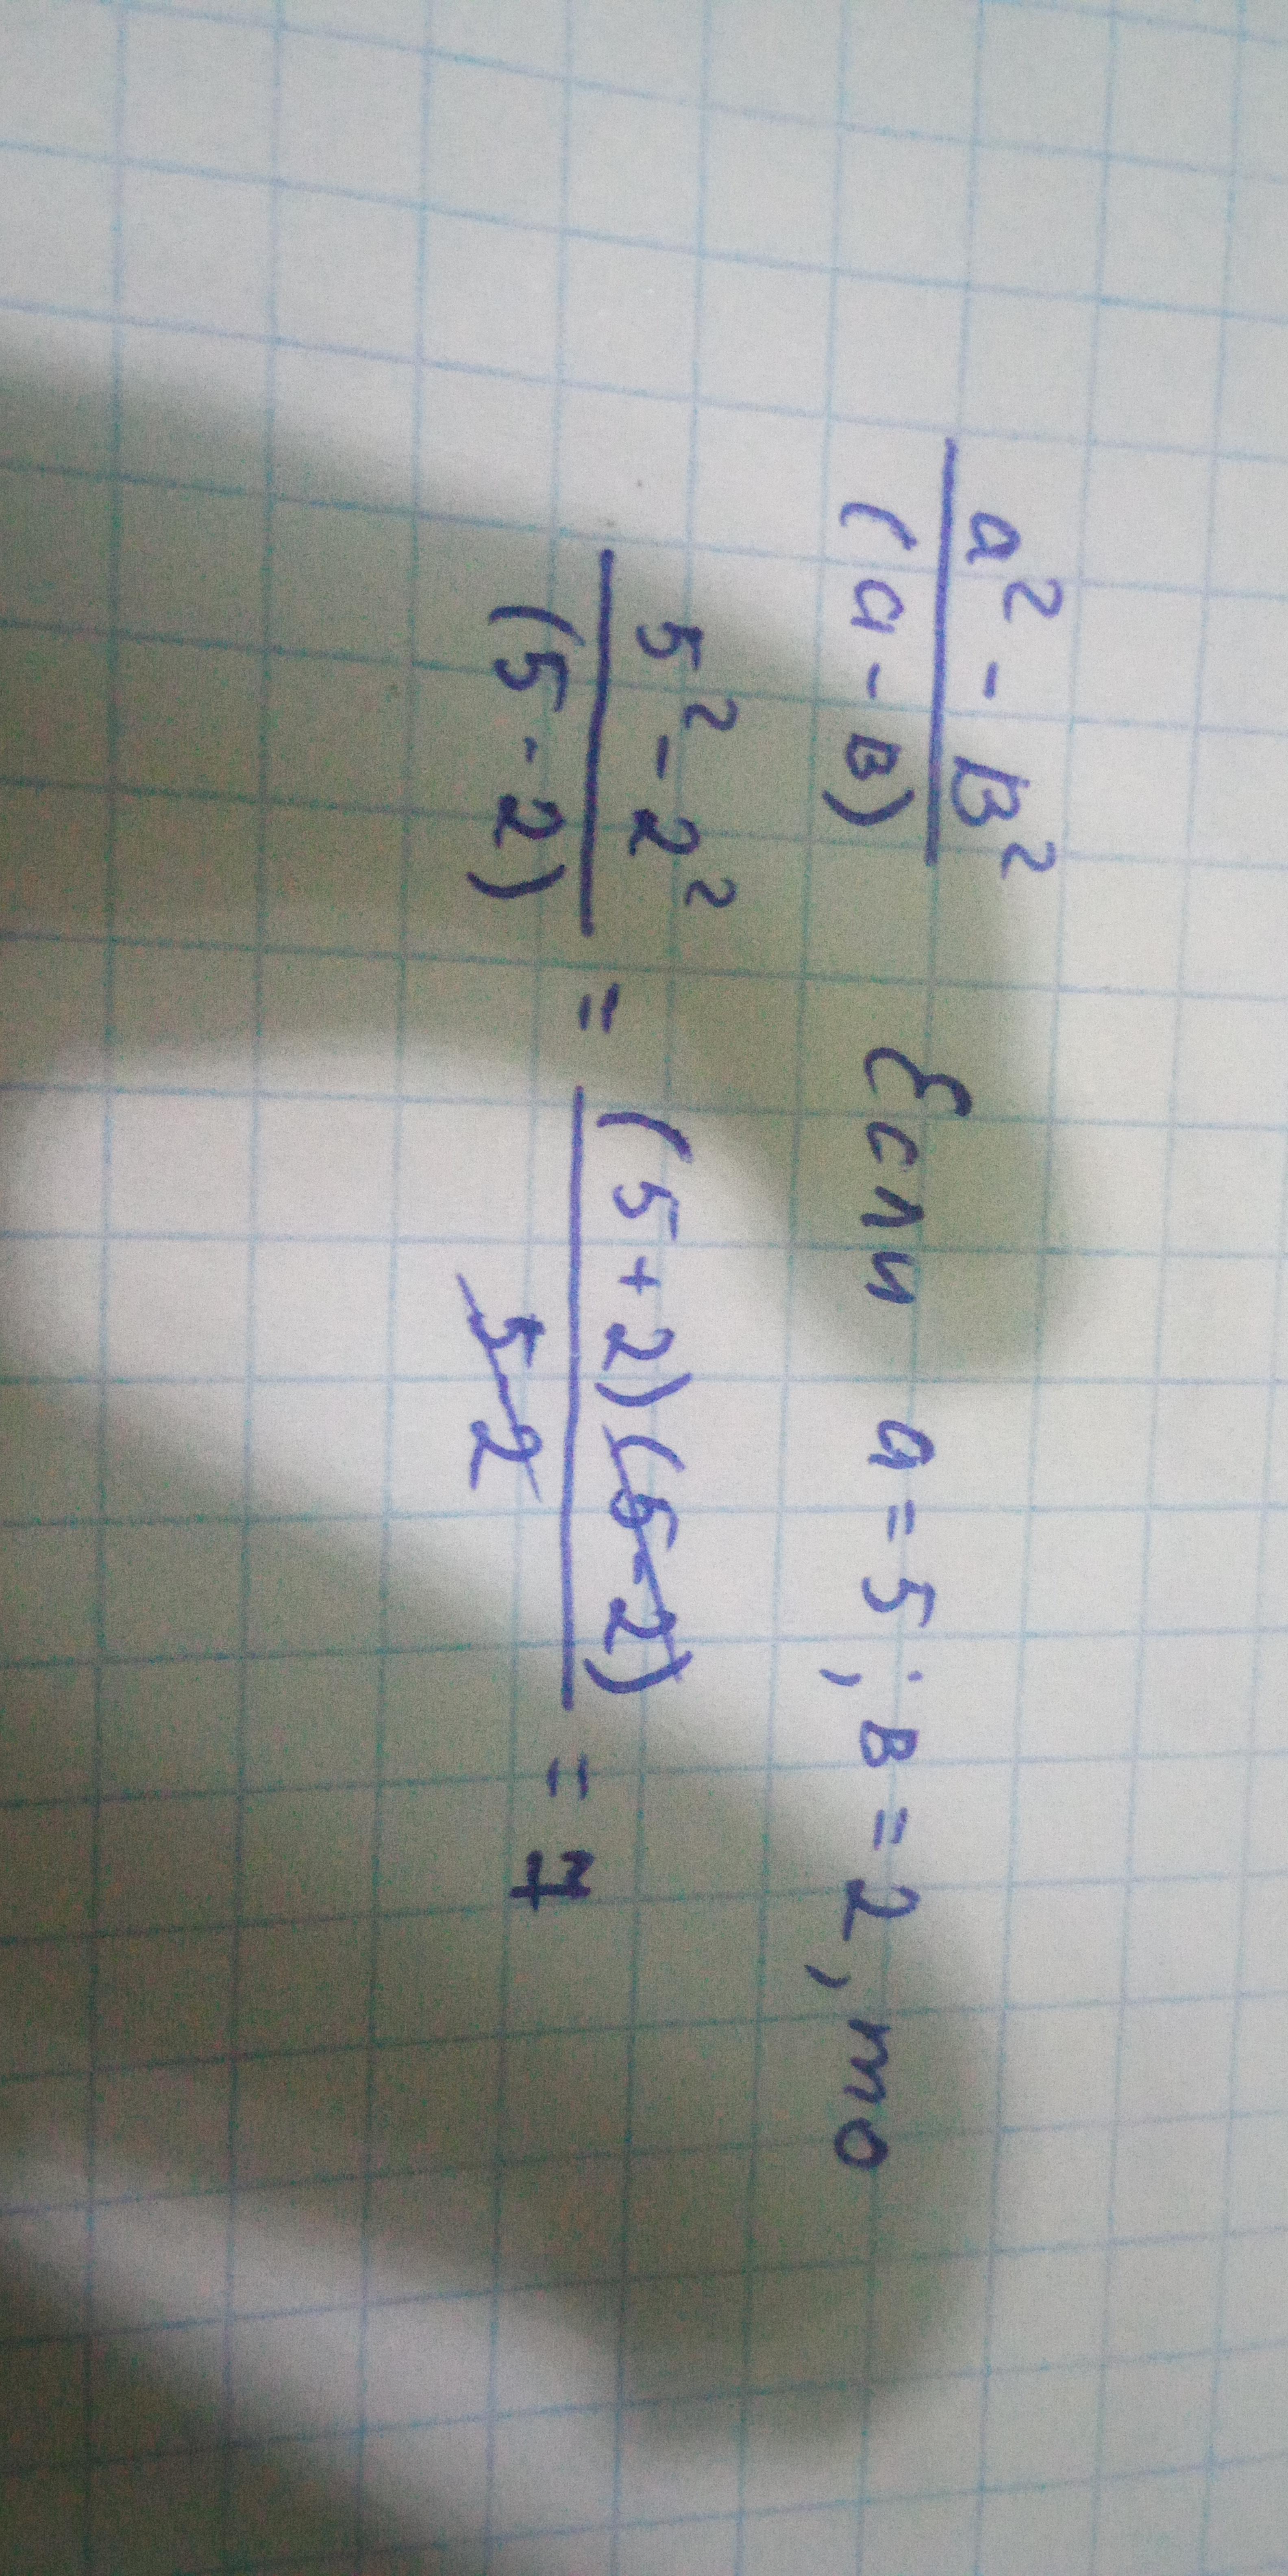 a² - в² / (a - в) Если a = 5 ; в = 2 , то
5² - 2² / (5 - 2) = (5 + 2) (5 - 2) / 5 - 2 = 7